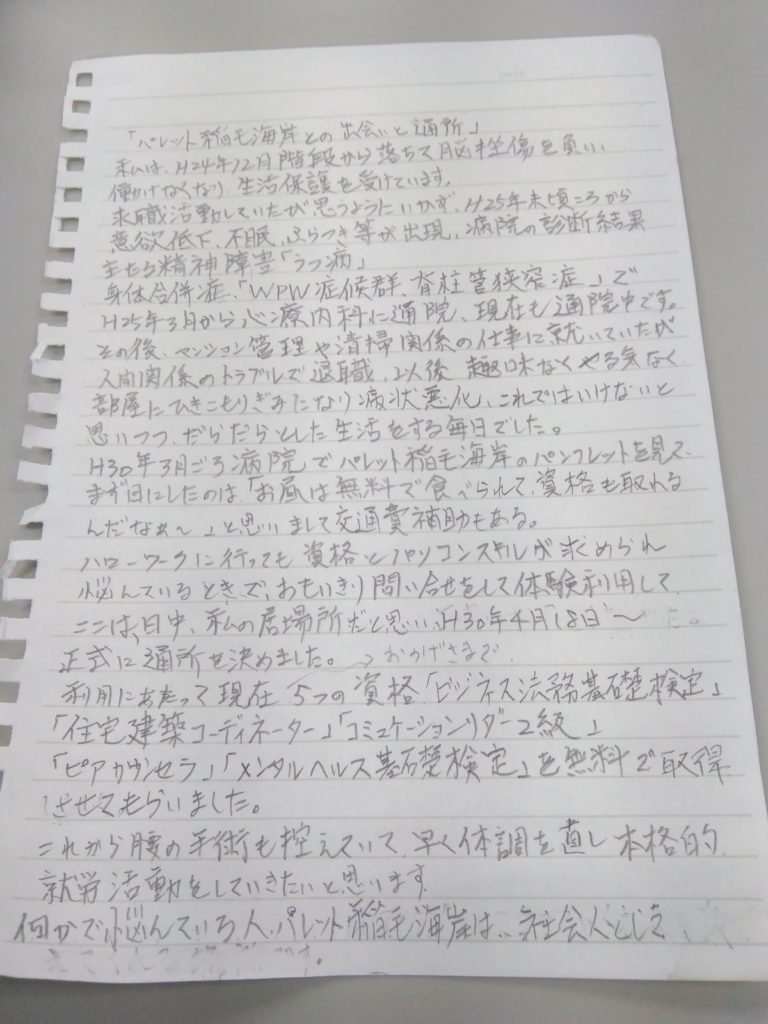 「パレット稲毛海岸との出会いと通所」
私は、H24年12月階段から落ちて脳挫傷を負い、
働けなくなり、生活保護を受けています。
求職活動していたが思うようにいかず、H25年末頃ころから
意欲低下、不眠、ふらつき等が出現、病院の診断結果
主たる精神障害「うつ病」
身体合併症、「WPW症候群、脊柱管狭窄症」で
H25年3月から心療内科に通院、現在も通院中です。
その後、マンション管理や清掃関係の仕事に就いていたが
人間関係のトラブルで退職、以後 趣味なくやる気なく
部屋にひきこもりぎみになり病状悪化、これではいけないと
思いつつ、だらだらとした生活をする毎日でした。
H30年3月ごろ病院でパレット稲毛海岸のパンフレットを見て、
まず目にしたのは、「お昼は無料で食べられて、資格も取れる
んだなぁ〜」と思いまして交通費補助もある。
ハローワークに行っても資格とパソコンスキルが求められ
悩んでいるときで、おもいきり問い合せをして体験利用して
ここは、日中、私の居場所だと思い、H30年4月18日〜
正式に通所を決めました。→おかげさまで
利用にあたって現在 5つの資格、「ビジネス法務基礎検定」
「住宅建築コーディネーター」「コミュケーションリダー2級」
「ピアカウンセラ」「メンタルヘルス基礎検定」を無料で取得
させてもらいました。
これから腰の手術も控えていて、早く体調を直し本格的
就労活動をしていきたいと思います
何かで悩んでいる人、パレット稲毛海岸は、社会人として
です。